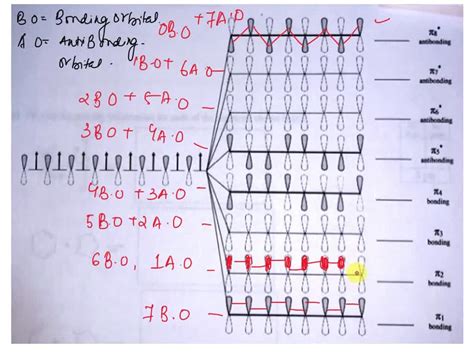 BO = Bonding orbital
AO = AntiBonding orbital.
0BO + 7A.O
1BO + 6A.O
2BO + 5A.O
3BO + 4A.O
4B.O + 3A.O
5B.O + 2A.O
6B.O, 1A.O
7B.O
π8*
antibonding
π7*
antibonding
π6*
antibonding
π5*
antibonding
π4
bonding
π3
bonding
π2
bonding
π1
bonding